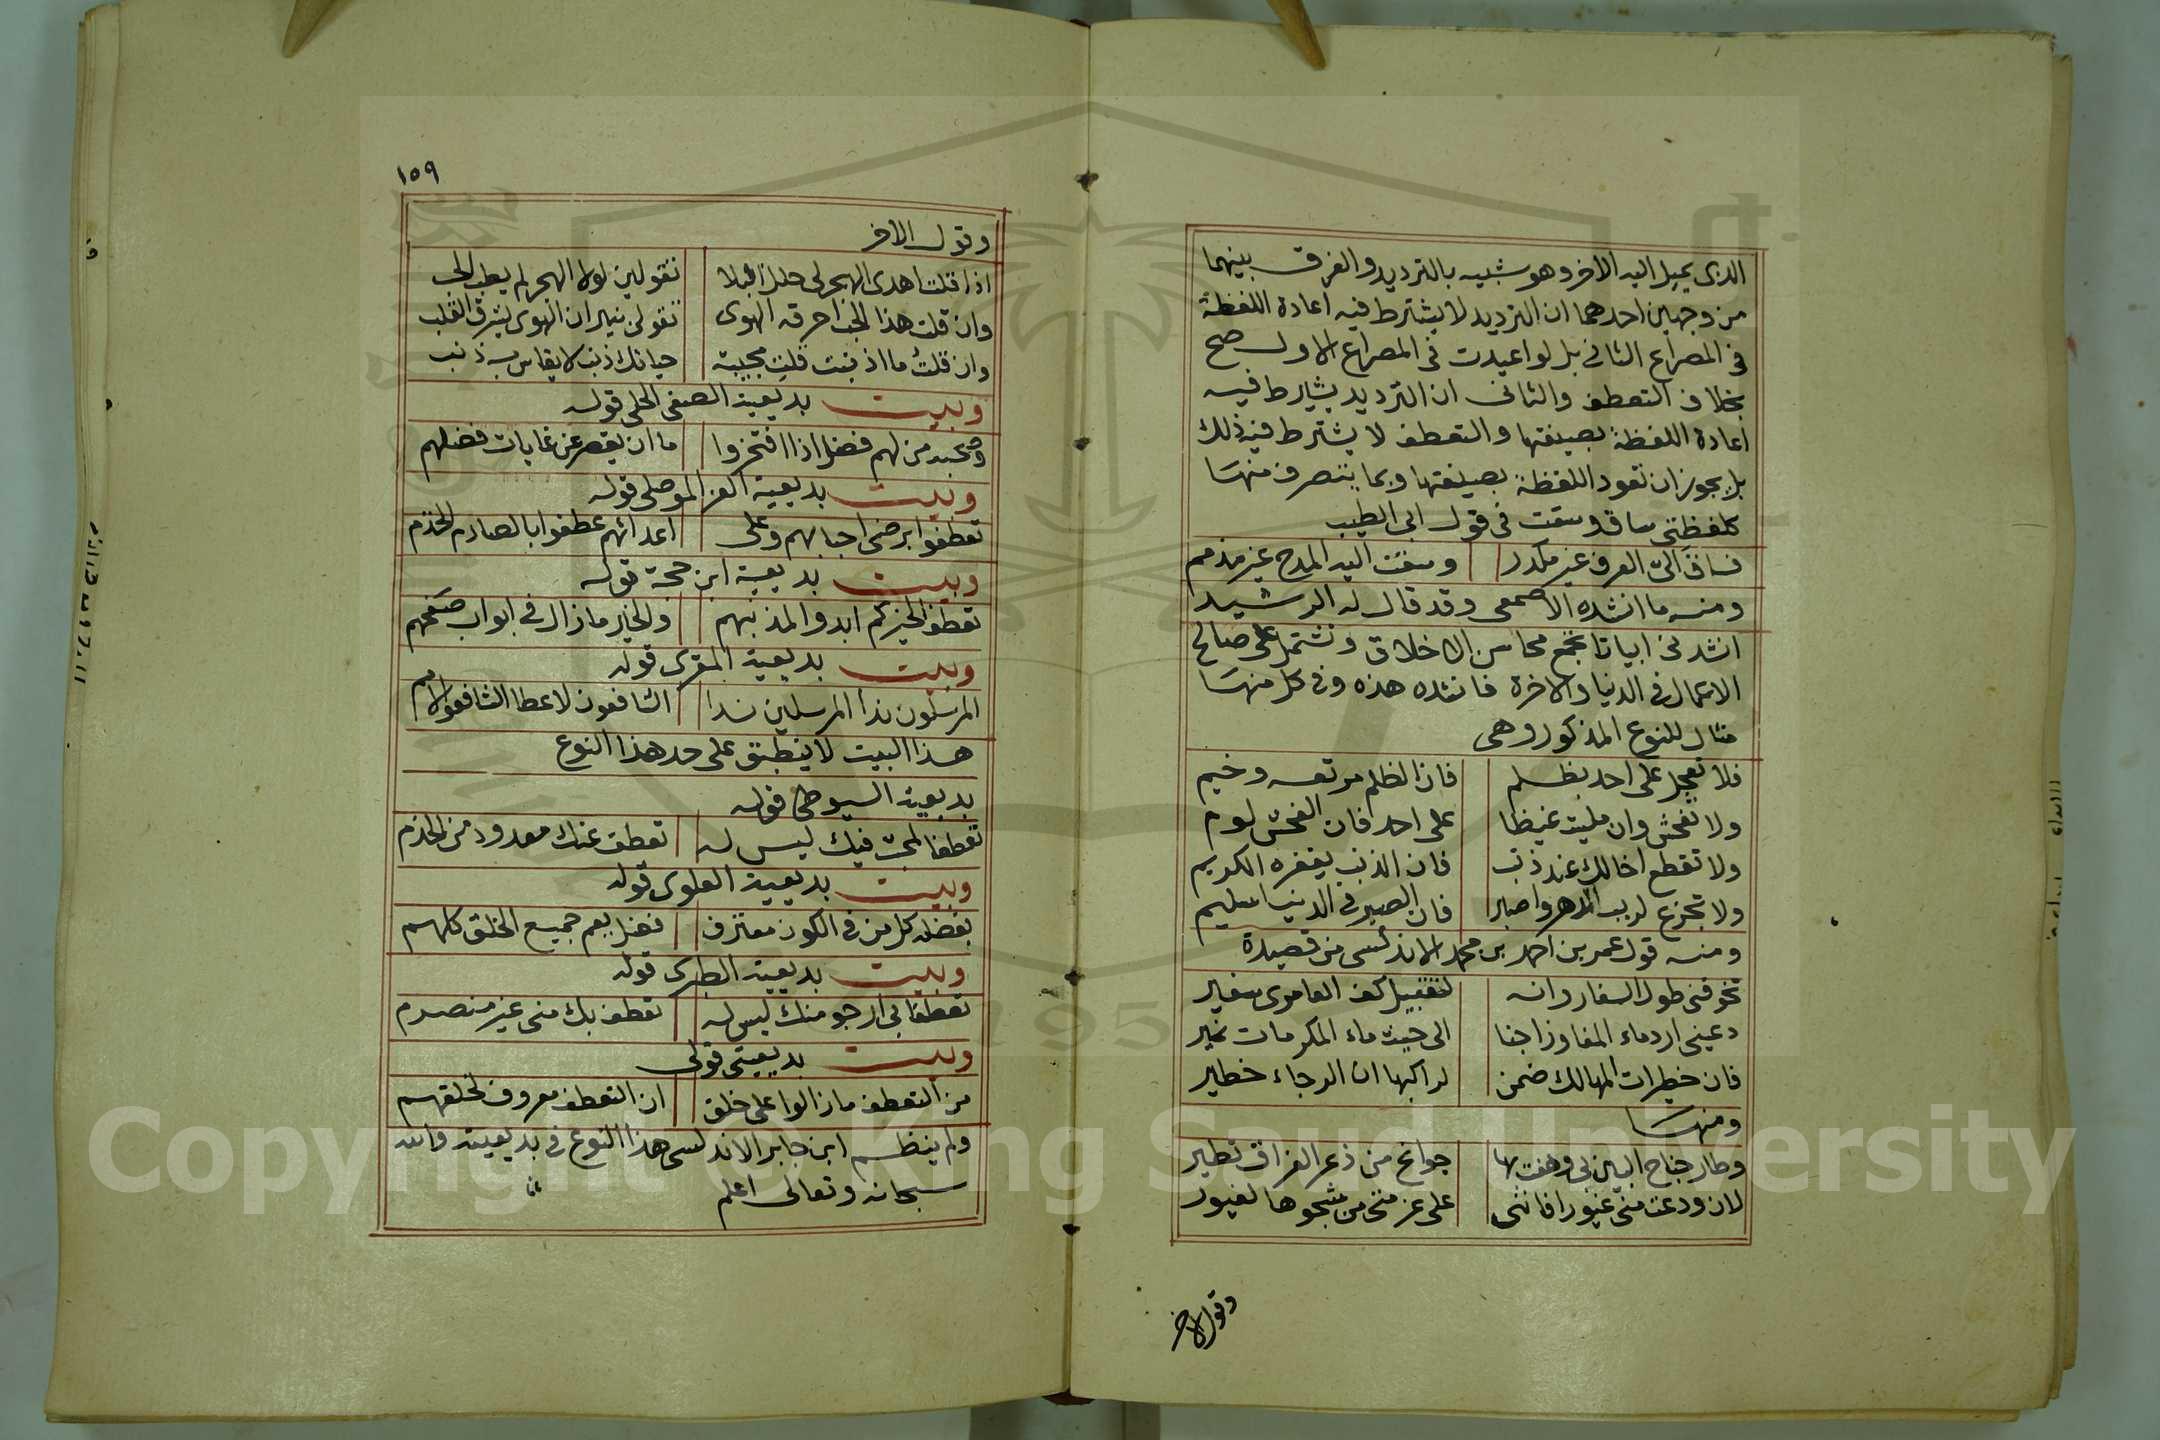 الذى يميل اليه الاخر وهو شبيه بالترديد والفرق بينهما
من وجهين احدهما ان الترديد لا يشترط فيه اعادة اللفظة
فى المصراع الثانى بل لو اعيدت فى المصراع الاول صح
بخلاف التعطف والثانى ان الترديد يشترط فيه
اعادة اللفظة بصيغتها والتعطف لا يشترط فيه ذلك
بل يجوز ان تعود اللفظة بصيغتها وبما يتصرف منها
كلفظتى ساق وسقت فى قول ابى الطيب
فساق الىّ العرف غير مكدر وسقت اليه المدح غير مذمم
ومنه ما انشده الاصمعى وقد قال له الرشيد
انشدنى ابياتا تجمع محاسن الاخلاق وتشتمل على صالح
الاعمال فى الدنيا والاخرة فانشده هذه وفى كل منها
مثال للنوع المذكور وهى
فلا تعجل على احد بظلم فان الظلم مرتعه وخيم
ولا تفحش وان مليت غيظا على احد فان الفحش لوم
ولا تقطع اخا لك عند ذنب فان الذنب يغفره الكريم
ولا تجزع لريب الدهر واصبر فان الصبر فى الدنيا سليم
ومنه قول عمر بن احمد بن محمد الاندلسى من قصيدة
تخوفنى طول السفار وانه لتقبيل كف العامرى سفير
دعينى ارد ماء المفاوز اجنا الى حيث ماء المكرمات نمير
فان خطيرات المهالك ضمن لراكبها ان الرجاء خطير
ومنها
وطار جناح البين بى وهفت بها جوانح من ذعر الفراق تطير
لان ودعت منى غيورا فاننى على عزمتى من شجوها لغيور
وقول الاخر
١٥٩
وقول الاخر
اذا قلت اهدى الهجر لى حلل البلا تقولين لولا الهجر لم يطب الحب
وان قلت هذا القلب احرقه الهوى تقولى نيران الهوى يشرق القلب
وان قلت ما اذنبت قلت مجيبة حياتك ذنب لا يقاس به ذنب
وبيت بديعية الصفى الحلى قوله
وصحبه من لهم فضل اذا افتخروا ما ان يقصر عن غايات فضلهم
وبيت بديعية العز الموصلى قوله
تعطفوا برضى احبابهم وعلى اعدائهم عطفوا بالصارم الخذم
وبيت بديعية ابن حجة قوله
تعطف الخير كم ابدوا لمذنبهم والخير ما زال فى ابواب صفحهم
وبيت بديعية المقرى قوله
المرسلون ندا المرسلين ندا الشافعون لاعطا الشافعى الامم
هذا البيت لا ينطبق على حد هذا النوع
بديعية السيوطى قوله
تعطفا لمحب فيك ليس له تعطف عنك معدود من الخدم
وبيت بديعية العلوى قوله
بفضله كل من فى الكون معترف فضل يعم جميع الخلق كلهم
وبيت بديعية الطبرى قوله
تعطفا بى ارجو منك ليس له تعطف بك منى غير منصرم
وبيت بديعيتى قولى
من التعطف ما زالوا على خلق ان التعطف معروف لخلقهم
ولم ينظم ابن جابر الاندلسى هذا النوع فى بديعيته والله
سبحانه وتعالى اعلم
Copyright © King Saud University
195